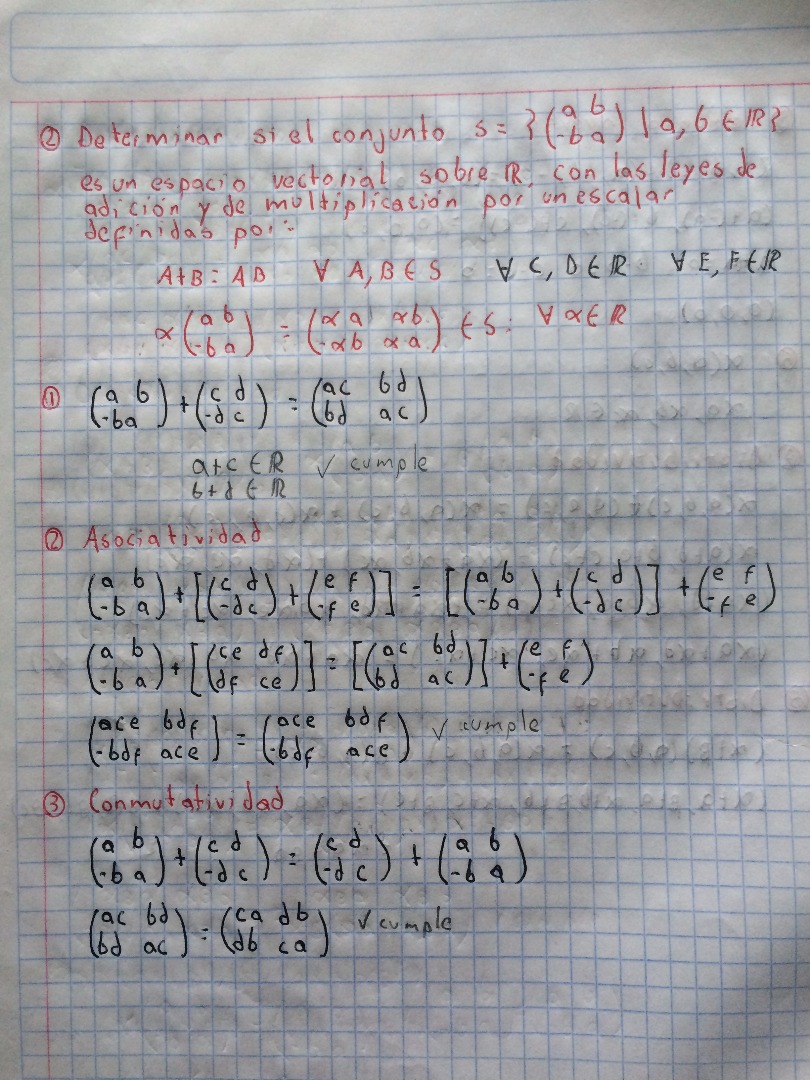 ② Determinar si el conjunto s = {(a b / -b a) | a, b ∈ ℝ}
es un espacio vectorial sobre ℝ, con las leyes de
adición y de multiplicación por un escalar
definidas por:
A+B = AB ∀ A, B ∈ S ∀ C, D ∈ ℝ ∀ E, F ∈ ℝ
∝ (a b / -b a) = (∝a ∝b / -∝b ∝a) ∈ S: ∀ ∝ ∈ ℝ
① (a b / -b a) + (c d / -d c) = (ac bd / bd ac)
a+c ∈ ℝ √ cumple
b+d ∈ ℝ
② Asociatividad
(a b / -b a) + [(c d / -d c) + (e f / -f e)] = [(a b / -b a) + (c d / -d c)] + (e f / -f e)
(a b / -b a) + [(ce df / df ce)] = [(ac bd / bd ac)] + (e f / -f e)
(ace bdf / -bdf ace) = (ace bdf / -bdf ace) √ cumple
③ Conmutatividad
(a b / -b a) + (c d / -d c) = (c d / -d c) + (a b / -b a)
(ac bd / bd ac) = (ca db / db ca) √ cumple